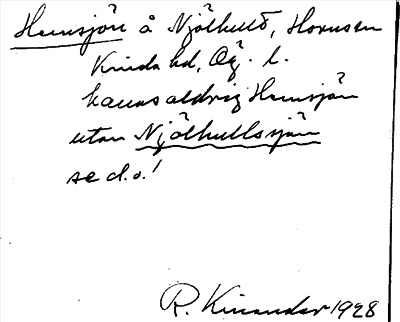 Hemsjön å Njölhult, Horn sn
Kinda hd, Ög. l.
kallas aldrig Hemsjön
utan Njölhultssjön
se d.o.!
R. Kinander 1928